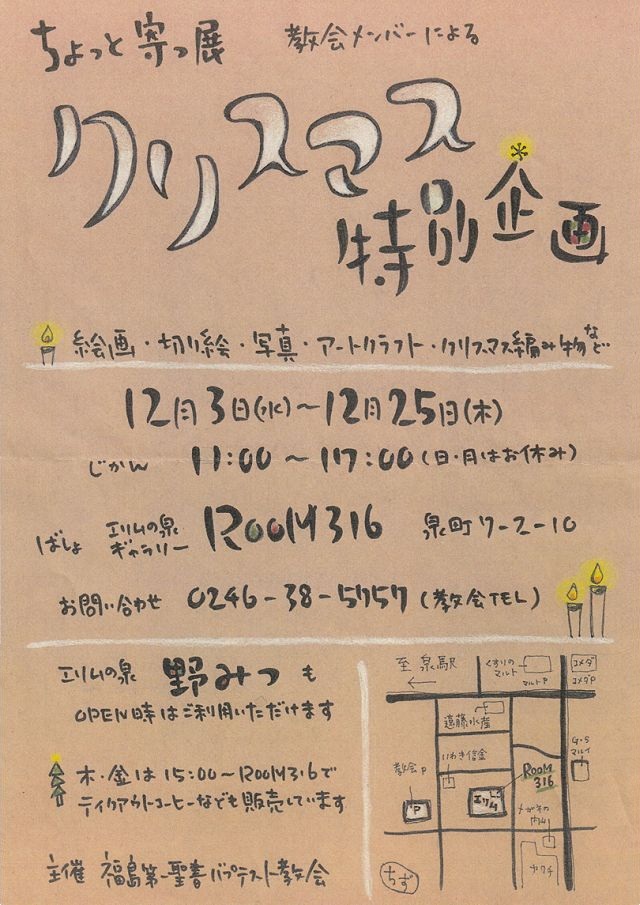 ちょっと寄っ展
教会メンバーによる
クリスマス
特別企画
絵画・切り絵・写真・アートクラフト・クリスマス編み物など
12月3日(水)～12月25日(木)
じかん 11:00～17:00(日・月はお休み)
ばしょ エリムの泉ギャラリー ROOM316 泉町7-2-10
お問い合わせ 0246-38-5757(教会TEL)
エリムの泉 野みつも
OPEN時はご利用いただけます
木・金は15:00～ROOM316で
テイクアウトコーヒーなども販売しています
主催 福島第一聖書バプテスト教会
至泉駅
くすりのマルト
マルトP
コメダ
コメダP
遠藤水産
いわき信金
G・S
マルイ
教会P
P
エリム
ROOM
316
メガネの
ヤクチ
ちず